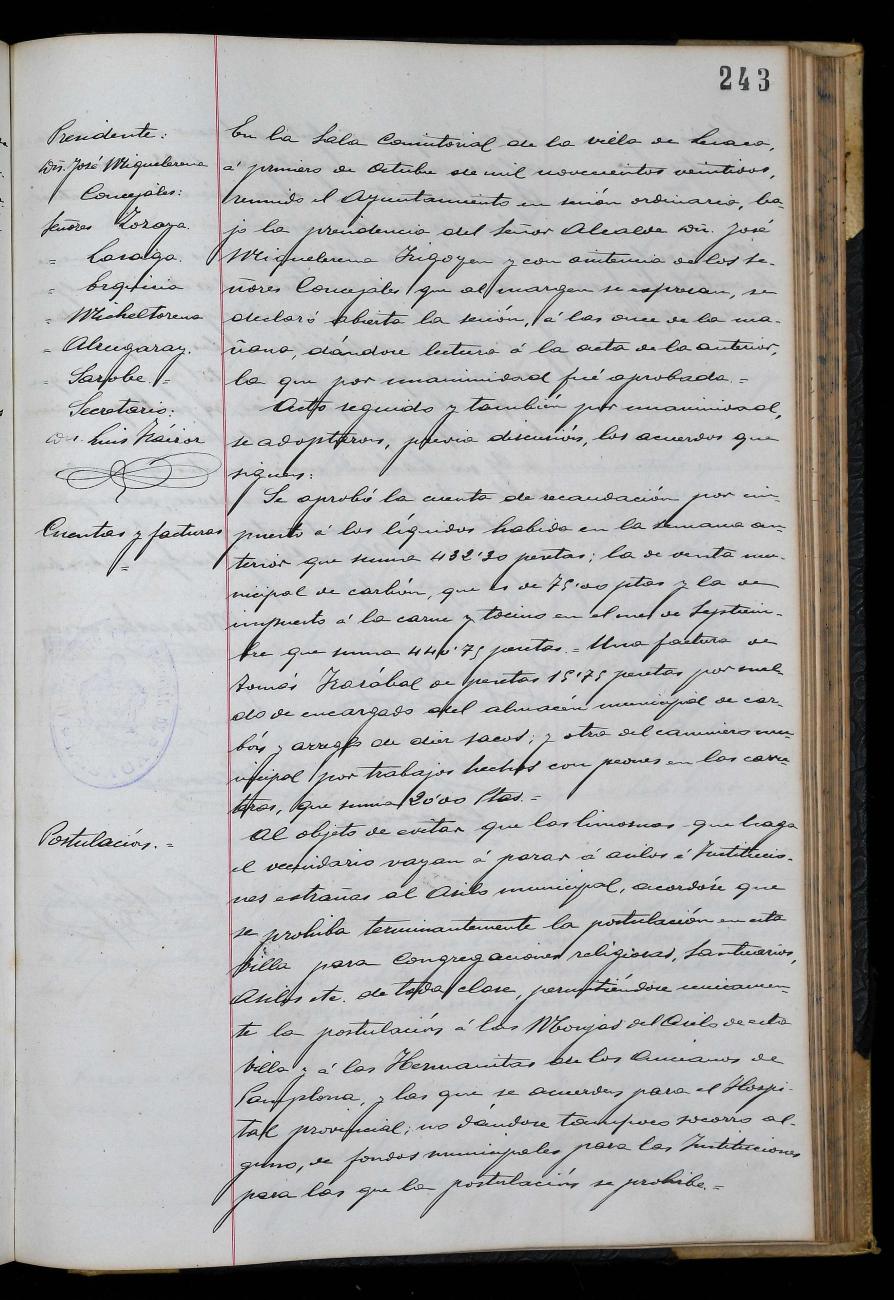 243
Presidente:
Dn. José Miquelerena
Concejales:
Señores Zoraya.
= Lasaga.
= Erquicia
= Micheltorena
= Alzugaray.
= Sarobe. =
Secretario:
Dn. Luis Iráizoz
Cuentas y facturas
=
Postulación. =
En la Sala Consistorial de la villa de Lesaca,
á primero de Octubre de mil novecientos veintidos,
reunido el Ayuntamiento en sesión ordinaria, ba-
jo la presidencia del Señor Alcalde Dn. José
Miquelerena Irigoyen y con asistencia de los se-
ñores Concejales que al margen se expresan, se
declaró abierta la sesión, á las once de la ma-
ñana, dándose lectura á la acta de la anterior,
la que por unanimidad fué aprobada. =
Acto seguido y también por unanimidad,
se adoptaron, previa discusión, los acuerdos que
siguen:
Se aprobó la cuenta de recaudación por im-
puesto á los líquidos habida en la semana an-
terior que suma 432'30 pesetas; la de venta mu-
nicipal de carbón, que es de 75'00 ptas y la de
impuesto á la carne y tocino en el mes de Septiem-
bre que suma 440'75 pesetas. = Una factura de
Tomás de pesetas 15'75 pesetas por suel-
do de encargado del almacén municipal de car-
bón y arreglo de diez sacos; y otra del caminero mu-
nicipal por trabajos hechos con peones en las carre-
teras, que suma 20'00 Ptas. =
Al objeto de evitar que las limosnas que haga
el vecindario vayan á parar á asilos é Institucio-
nes estrañas al Asilo municipal, acordóse que
se prohiba terminantemente la postulación en esta
villa para Congregaciones religiosas, Santuarios,
Asilos etc. de toda clase, permitiéndose unicamen-
te la postulación á las Monjas del Asilo de esta
villa y á las Hermanitas de los Ancianos de
Pamplona, y las que se acuerden para el Hospi-
tal provincial; no dándose tampoco socorro al-
guno, de fondos municipales para las Instituciones
para las que la postulación se prohibe. =